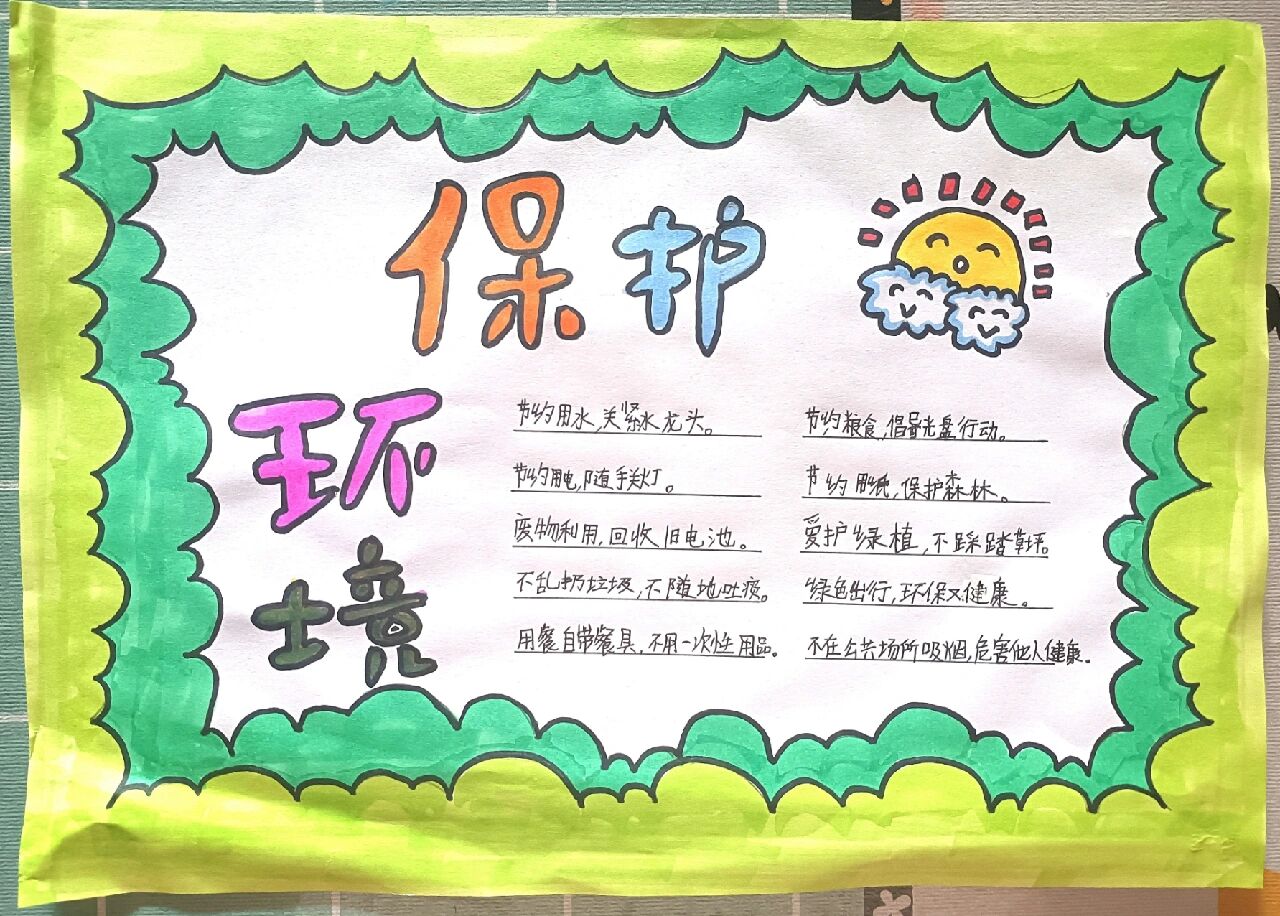 保护
环
境
节约用水,关紧水龙头。
节约用电,随手关灯。
废物利用,回收旧电池。
不乱扔垃圾,不随地吐痰。
用餐自带餐具,不用一次性用品。
节约粮食,倡导光盘行动。
节约用纸,保护森林。
爱护绿植,不踩踏草坪。
绿色出行,环保又健康。
不在公共场所吸烟,危害他人健康。